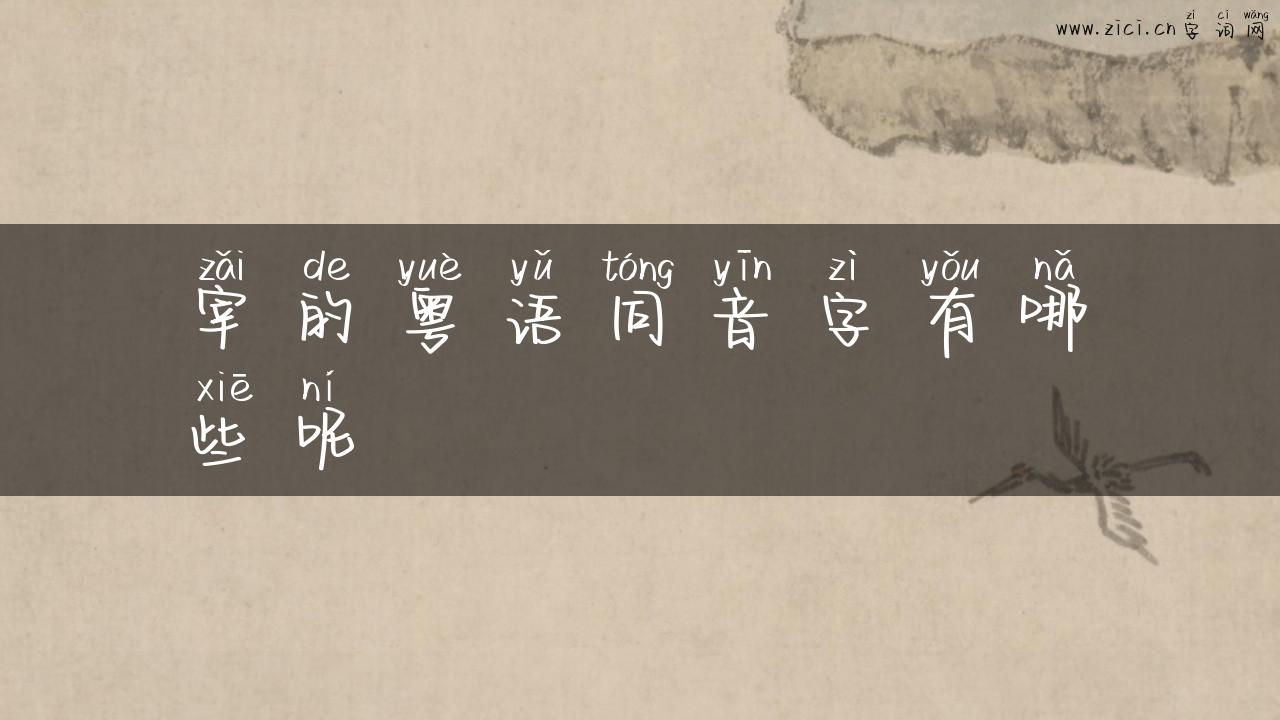 zì cí wǎng
www.zici.cn字词网
zǎi de yuè yǔ tóng yīn zì yǒu nǎ
宰的粤语同音字有哪
xiē ní
些呢